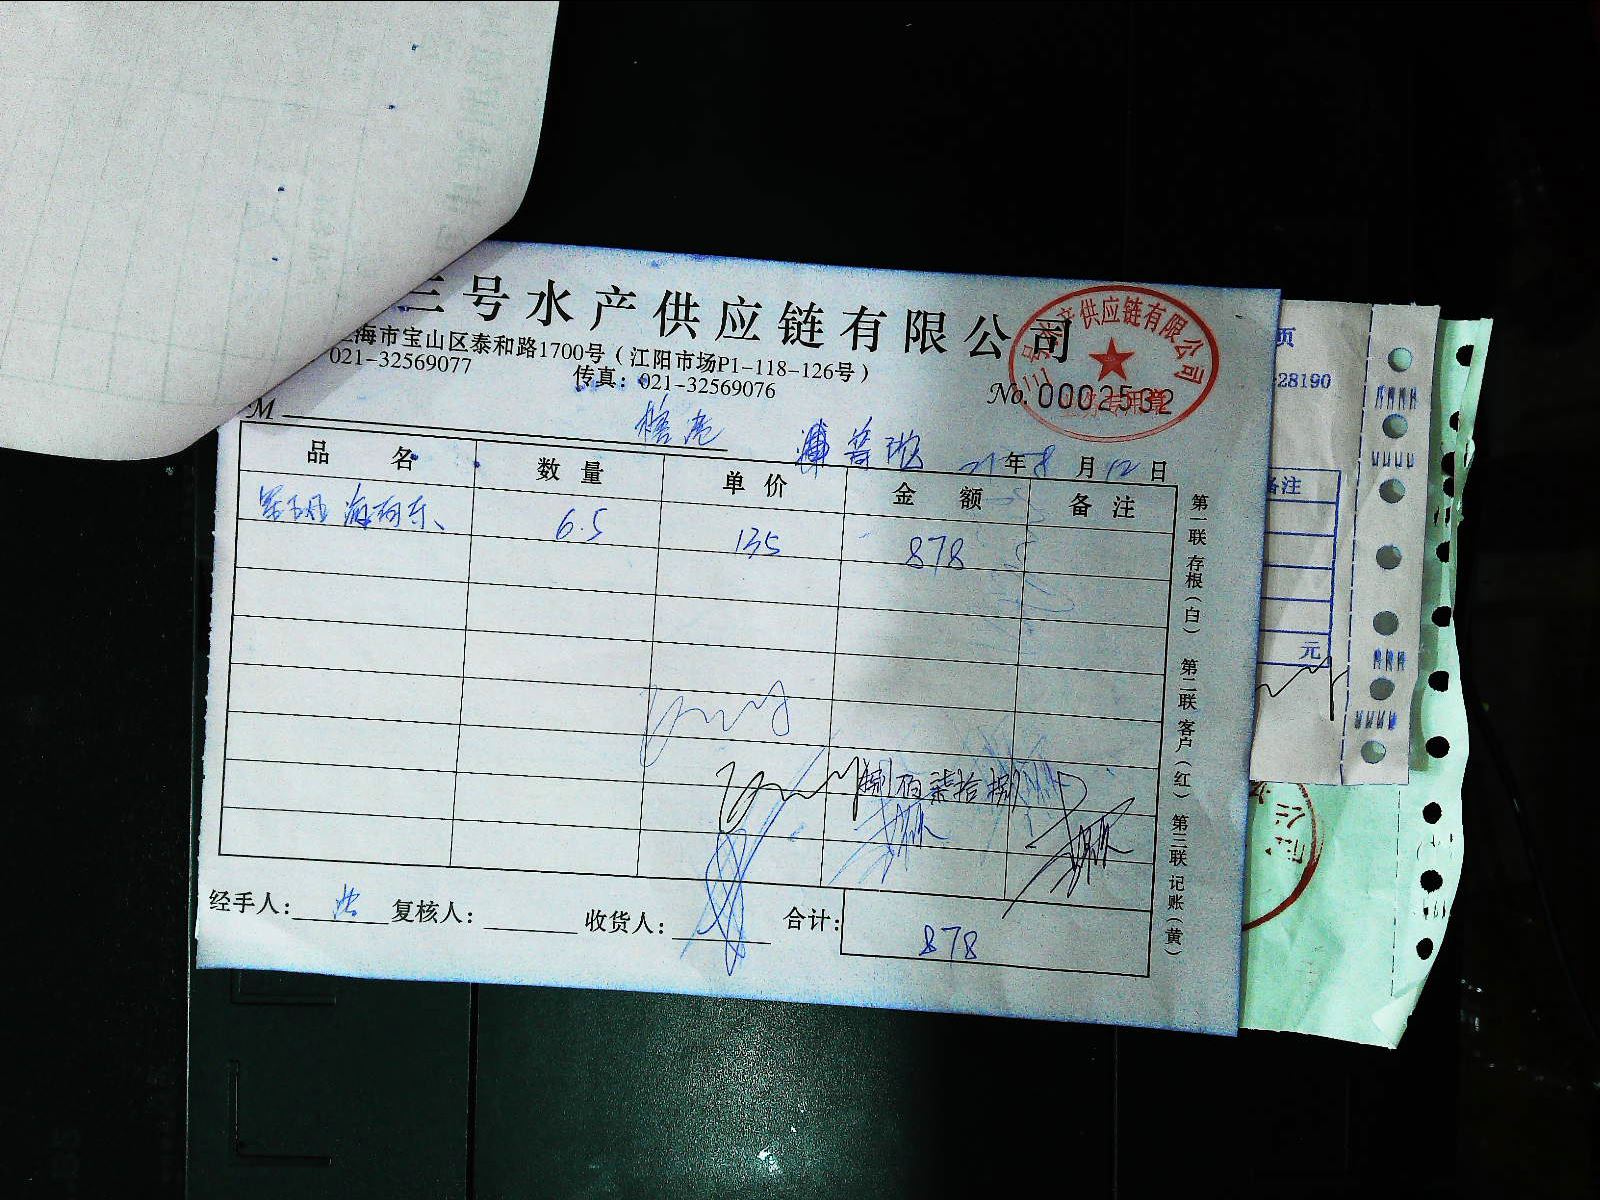 三号水产供应链有限公司
海市宝山区泰和路1700号（江阳市场P1-118-126号）
021-32569077 传真：021-32569076
No. 0002532
产供应链有限公司
专用章
M 21年8月12日
品名 数量 单价 金额 备注
6.5 135 878
捌佰柒拾捌
经手人： 复核人： 收货人： 合计： 878
第一联 存根（白） 第二联 客户（红） 第三联 记账（黄）
页
-28190
备注
元